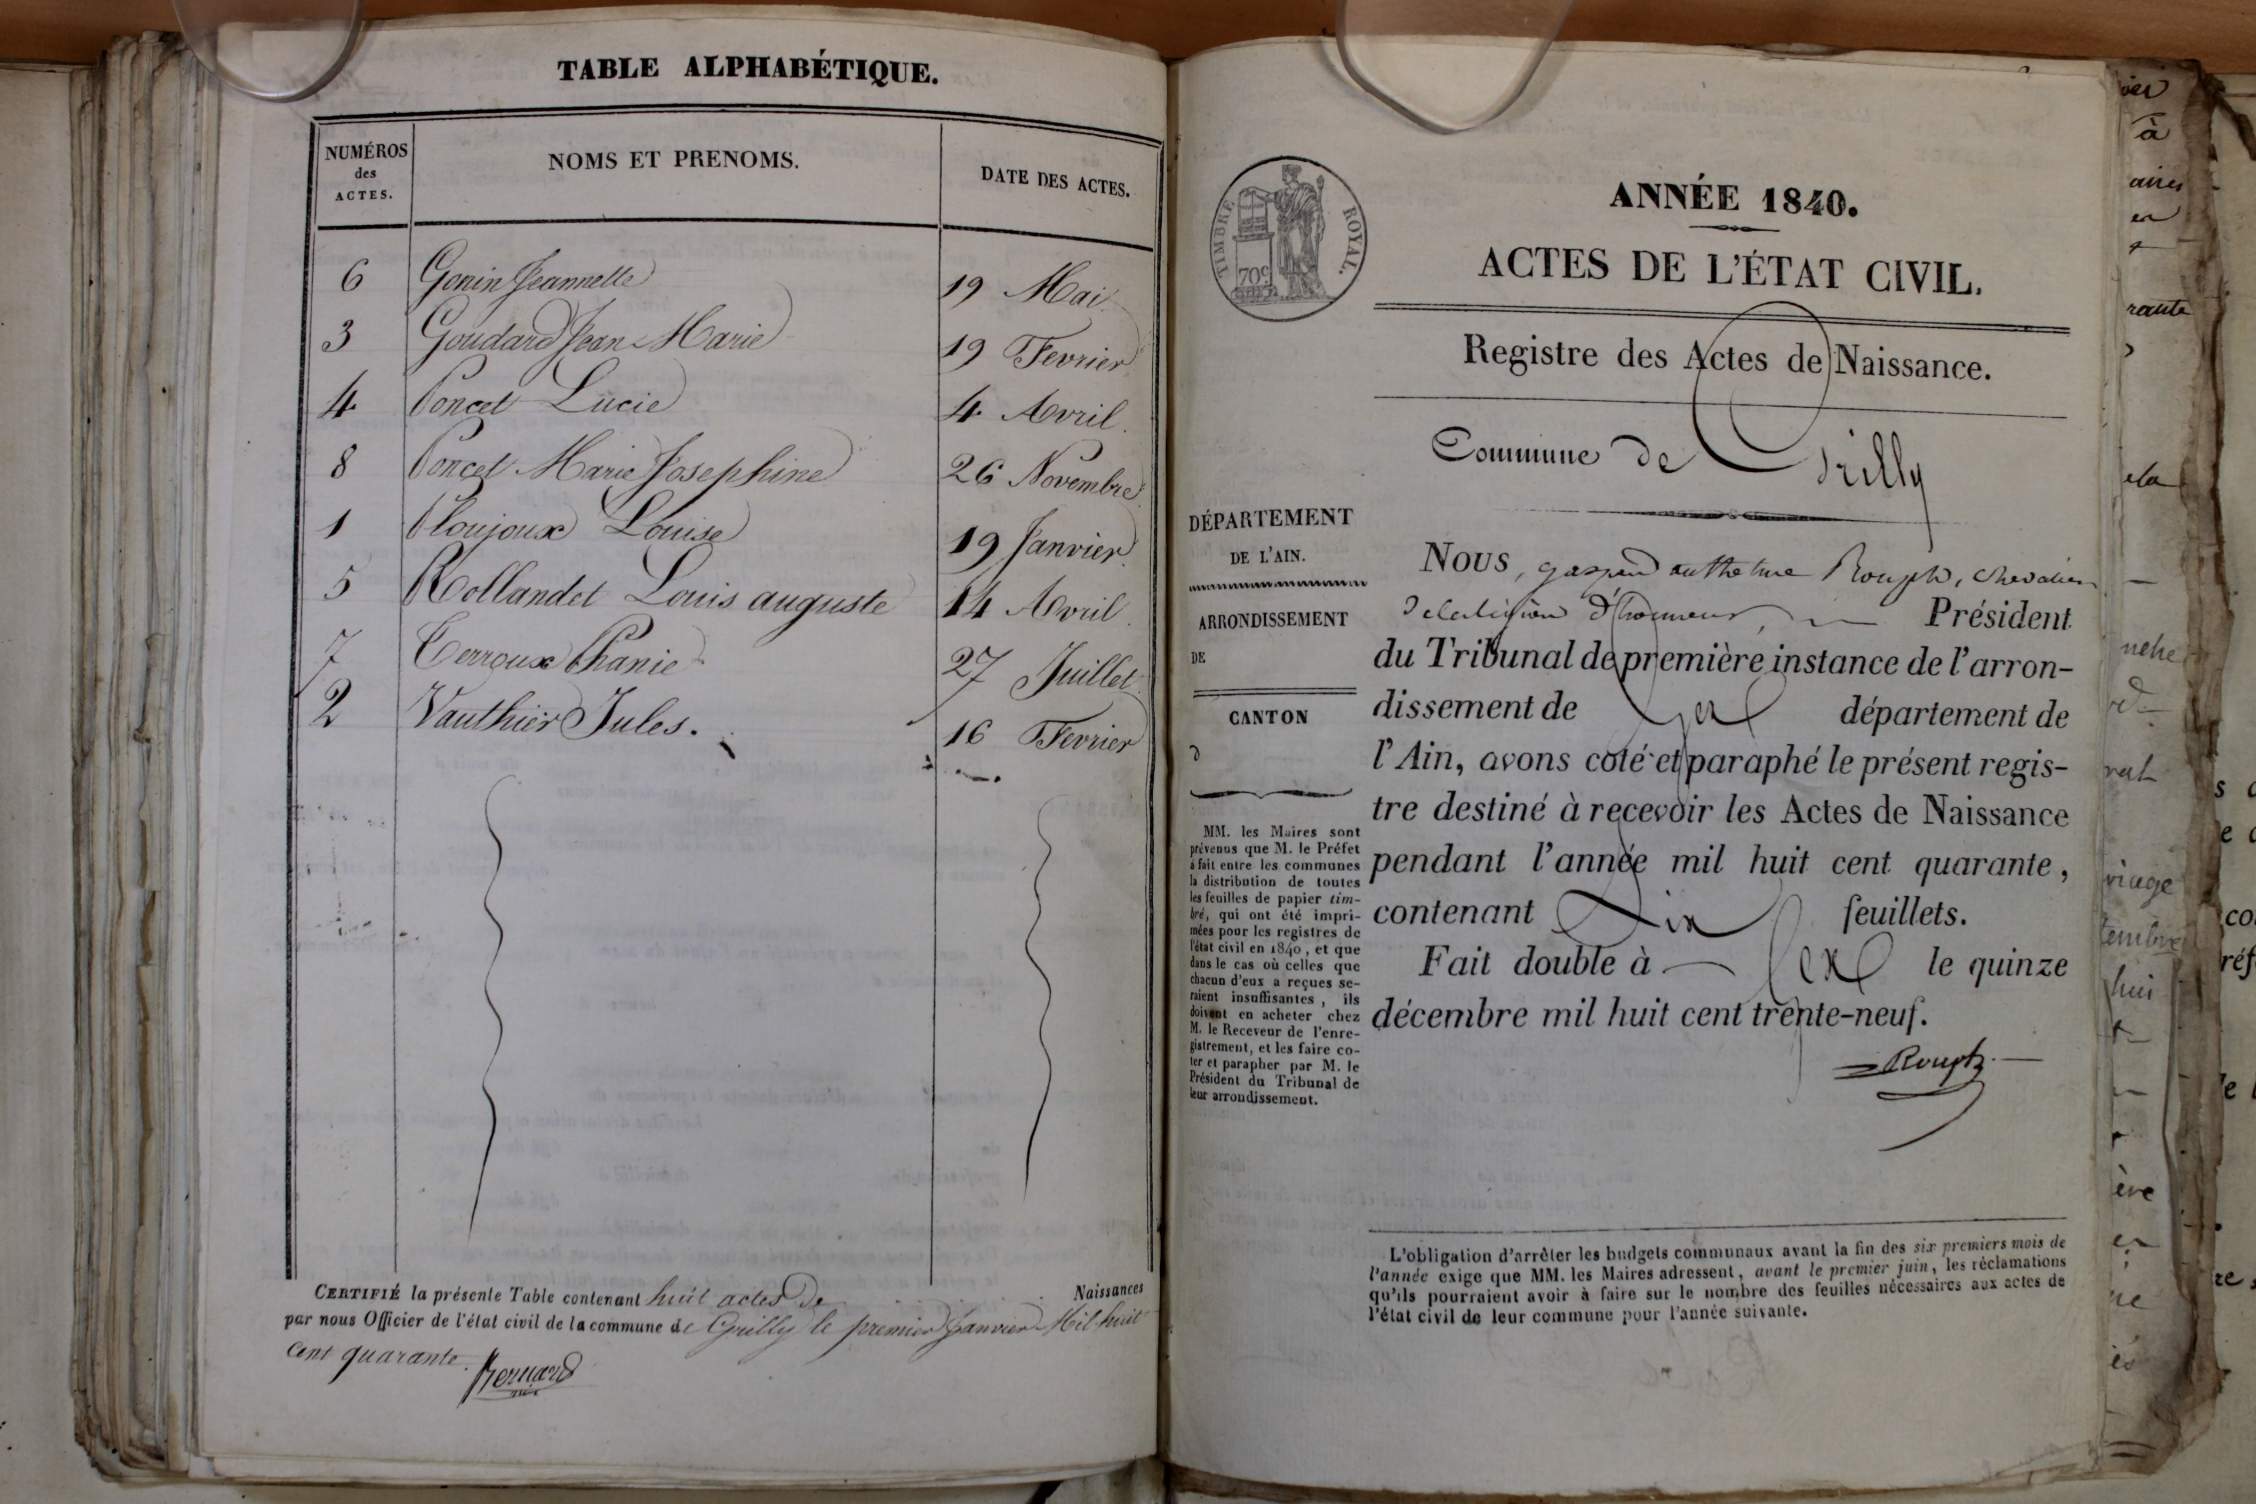 TABLE ALPHABÉTIQUE.
NUMÉROS des ACTES.
NOMS ET PRENOMS.
DATE DES ACTES.
6 Genin Jeannette 19 Mai
3 Goudard Jean Marie 19 Fevrier
4 Poncet Lucie 4 Avril.
8 Poncet Marie Josephine 26 Novembre
1 Ploujoux Louise 19 Janvier.
5 Rollandet Louis auguste 14 Avril.
7 Terroux Phanie 27 Juillet
2 Vauthier Jules. 16 Fevrier
CERTIFIÉ la présente Table contenant huit actes de Naissances
par nous Officier de l'état civil de la commune de Grilly le premier Janvier Mil huit
cent quarante.
Bernard
TIMBRE ROYAL.
70c
ANNÉE 1840.
ACTES DE L'ÉTAT CIVIL.
Registre des Actes de Naissance.
Commune de Grilly
DÉPARTEMENT
DE L'AIN.
ARRONDISSEMENT
DE
CANTON
d
MM. les Maires sont
prévenus que M. le Préfet
a fait entre les communes
la distribution de toutes
les feuilles de papier tim-
bré, qui ont été impri-
mées pour les registres de
l'état civil en 1840, et que
dans le cas où celles que
chacun d'eux a reçues se-
raient insuffisantes, ils
doivent en acheter chez
M. le Receveur de l'enre-
gistrement, et les faire co-
ter et parapher par M. le
Président du Tribunal de
leur arrondissement.
NOUS, gaspard Rouph, chevalier
de la légion d'honneur, Président
du Tribunal de première instance de l'arron-
dissement de Gex département de
l'Ain, avons coté et paraphé le présent regis-
tre destiné à recevoir les Actes de Naissance
pendant l'année mil huit cent quarante,
contenant Dix feuillets.
Fait double à Gex le quinze
décembre mil huit cent trente-neuf.
Rouph
L'obligation d'arrêter les budgets communaux avant la fin des six premiers mois de
l'année exige que MM. les Maires adressent, avant le premier juin, les réclamations
qu'ils pourraient avoir à faire sur le nombre des feuilles nécessaires aux actes de
l'état civil de leur commune pour l'année suivante.